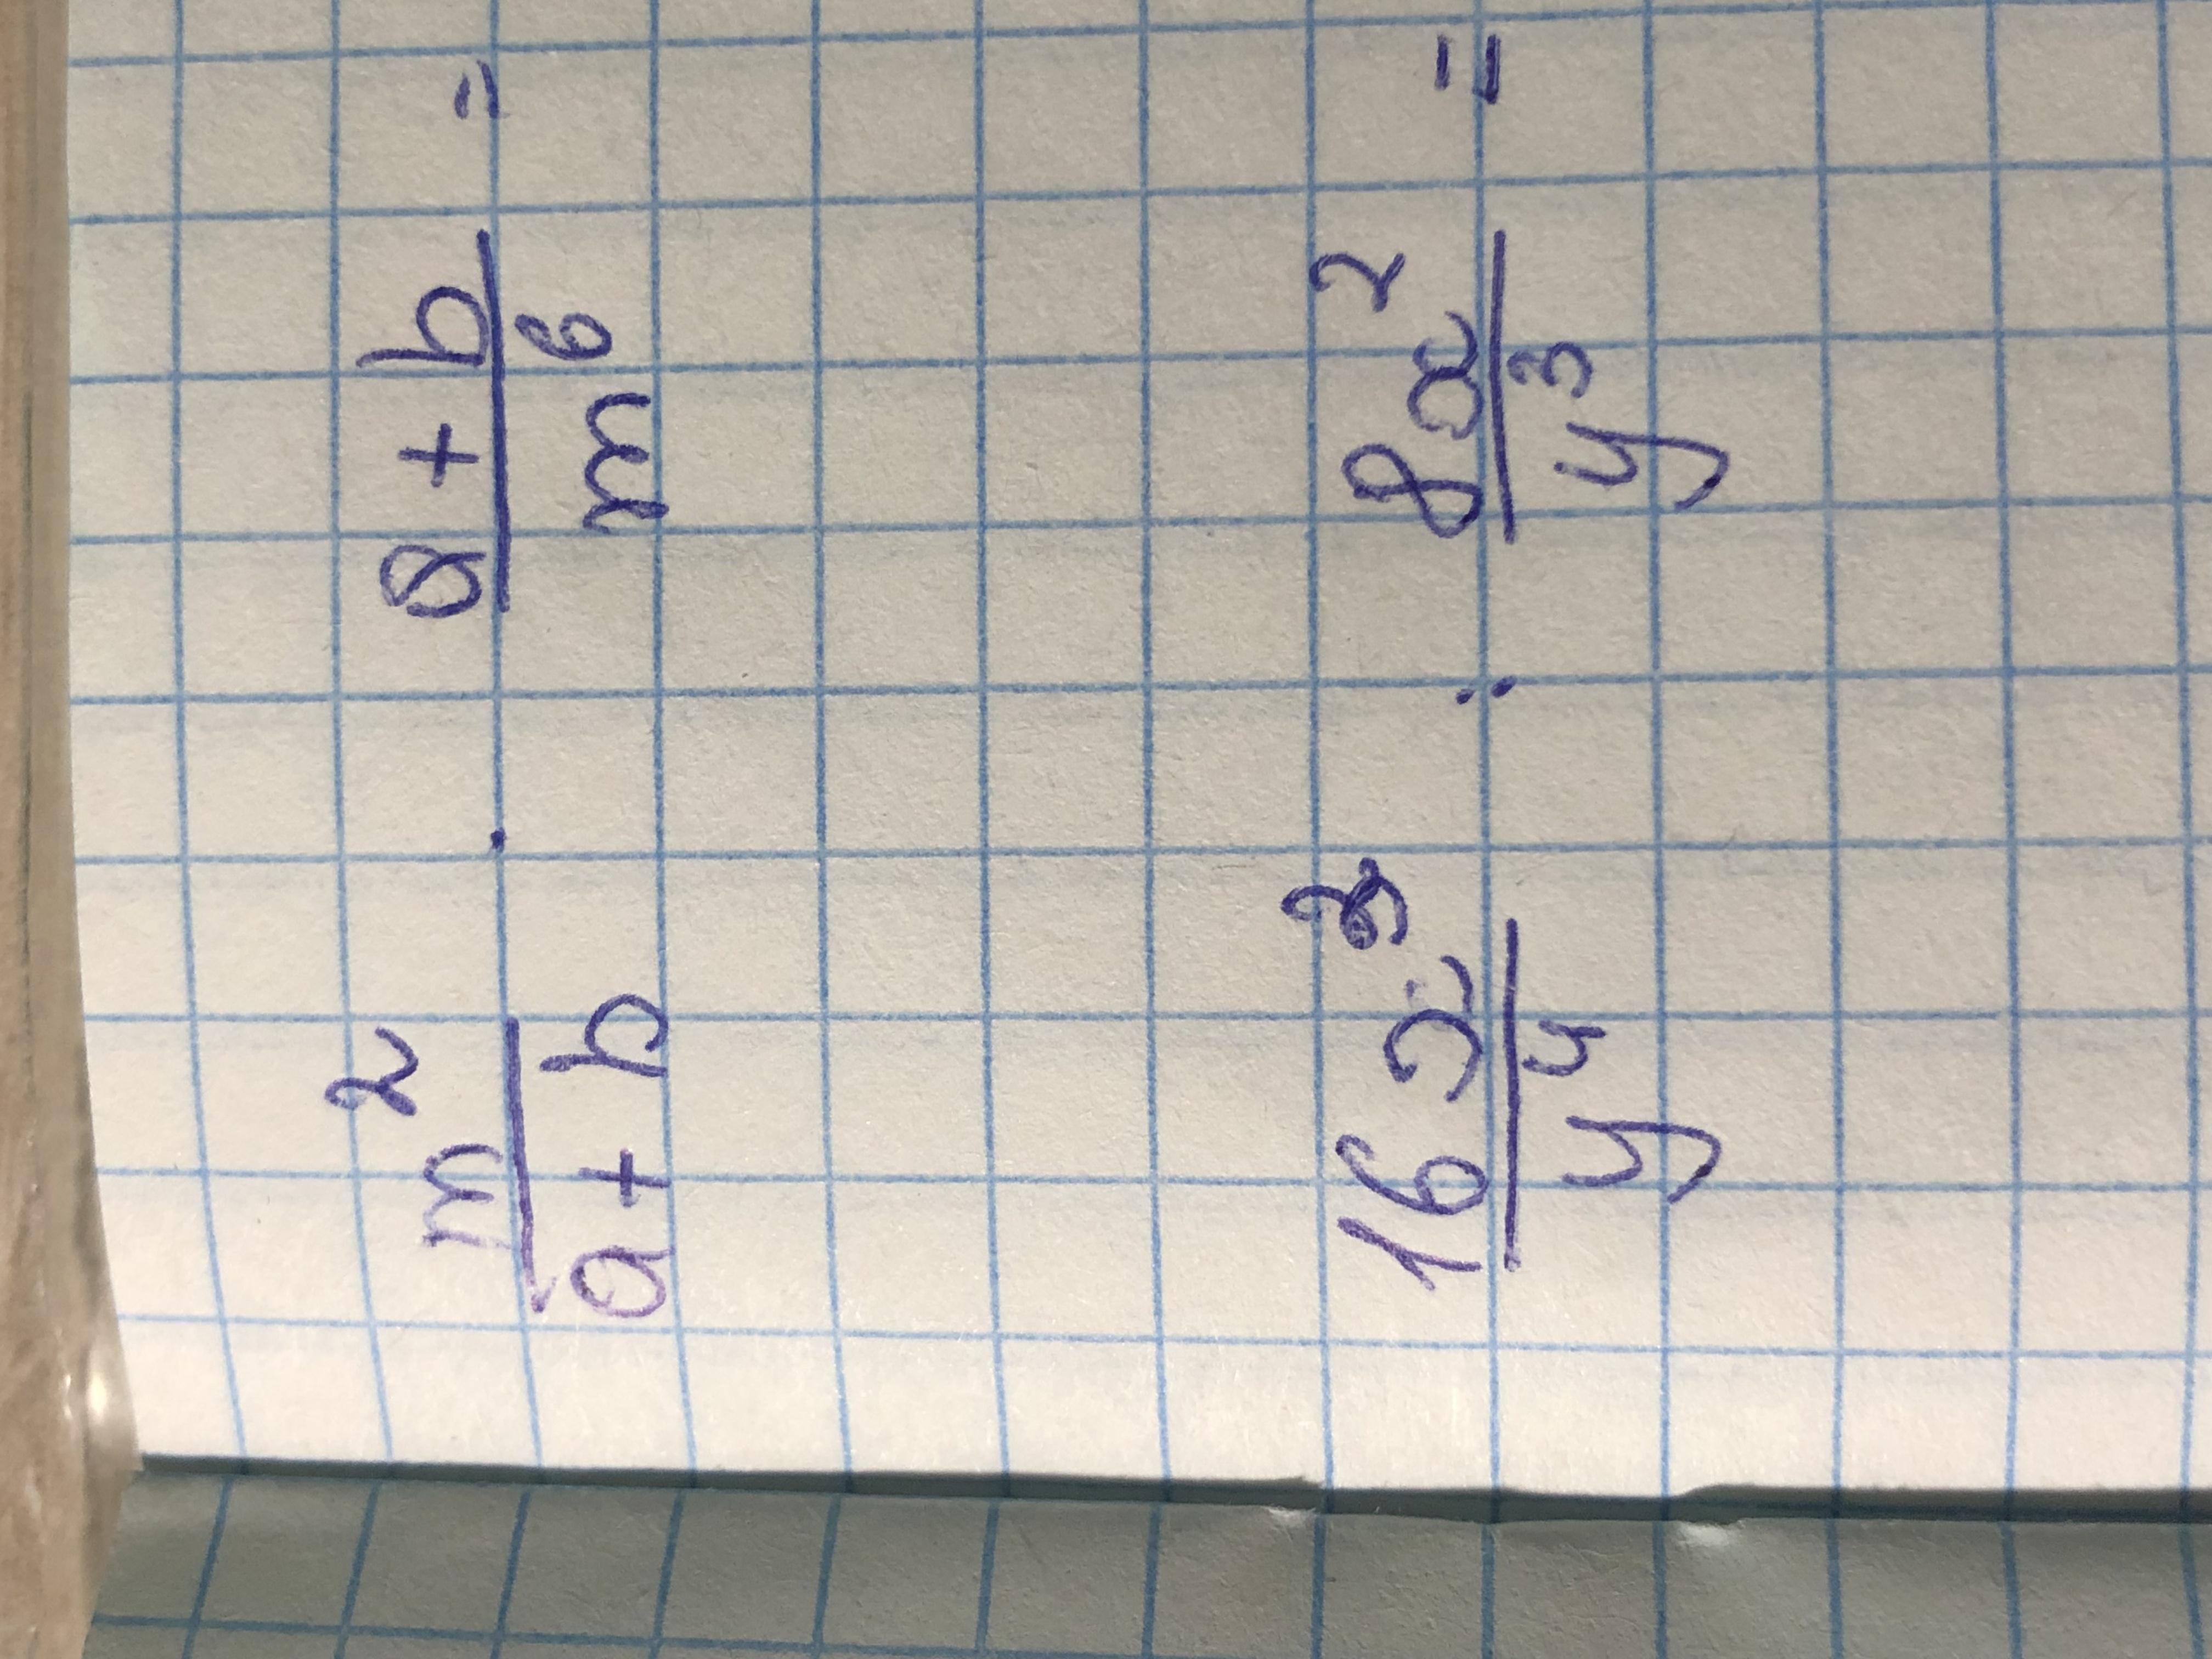 m²/(a + b) · (a + b)/m⁶ =
16x/y⁴ : 8x²/y³ =